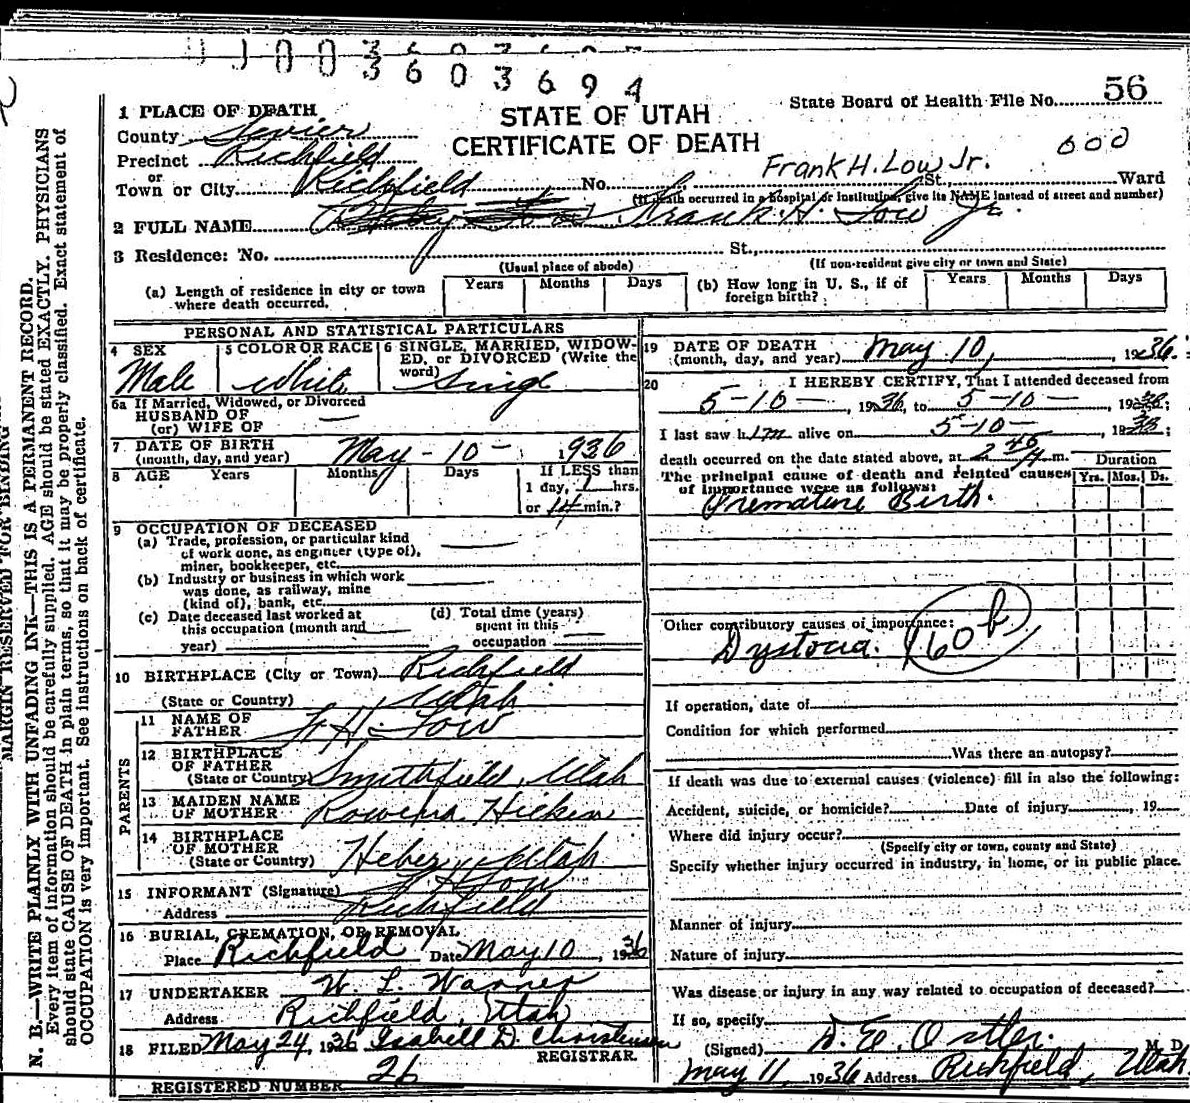 003603694
State Board of Health File No. 56
1 PLACE OF DEATH
STATE OF UTAH
County Sevier
CERTIFICATE OF DEATH
000
Precinct Richfield
Frank H. Low Jr.
or
Town or City Richfield No. St., Ward
(If death occurred in a hospital or institution, give its NAME instead of street and number)
2 FULL NAME Baby Low Frank H. Low Jr.
3 Residence: No. St.,
(Usual place of abode) (If non-resident give city or town and State)
(a) Length of residence in city or town where death occurred. Years Months Days
(b) How long in U. S., if of foreign birth? Years Months Days
PERSONAL AND STATISTICAL PARTICULARS
4 SEX Male
5 COLOR OR RACE White
6 SINGLE, MARRIED, WIDOWED, or DIVORCED (Write the word) Singl
6a If Married, Widowed, or Divorced
HUSBAND OF —
(or) WIFE OF
7 DATE OF BIRTH
(month, day, and year) May - 10 - 1936
8 AGE Years Months Days
If LESS than
1 day, 1 hrs.
or 14 min.?
9 OCCUPATION OF DECEASED
(a) Trade, profession, or particular kind
of work done, as engineer (type of),
miner, bookkeeper, etc.
(b) Industry or business in which work
was done, as railway, mine
(kind of), bank, etc.
(c) Date deceased last worked at
this occupation (month and
year)
(d) Total time (years)
spent in this
occupation
10 BIRTHPLACE (City or Town) Richfield
(State or Country) Utah
PARENTS
11 NAME OF
FATHER F. H. Low
12 BIRTHPLACE
OF FATHER
(State or Country) Smithfield, Utah
13 MAIDEN NAME
OF MOTHER Rowena Hicken
14 BIRTHPLACE
OF MOTHER
(State or Country) Heber, Utah
15 INFORMANT (Signature) F. H. Low
Address Richfield
16 BURIAL, CREMATION, OR REMOVAL
Place Richfield Date May 10, 1936
17 UNDERTAKER W. L. Warner
Address Richfield, Utah
18 FILED May 24, 1936 Isabell D. Christensen
REGISTRAR.
REGISTERED NUMBER 26
19 DATE OF DEATH
(month, day, and year) May 10, , 1936.
20 I HEREBY CERTIFY, That I attended deceased from
5-10- , 1936, to 5-10- , 1936;
I last saw him alive on 5-10- , 1936;
death occurred on the date stated above, at 2 45 A m.
The principal cause of death and related causes
of importance were as follows:
Duration
Yrs. Mos. Ds.
Premature Birth.
Other contributory causes of importance:
Dystocia. 160 b
If operation, date of
Condition for which performed
Was there an autopsy?
If death was due to external causes (violence) fill in also the following:
Accident, suicide, or homicide? Date of injury , 19
Where did injury occur?
(Specify city or town, county and State)
Specify whether injury occurred in industry, in home, or in public place.
Manner of injury
Nature of injury
Was disease or injury in any way related to occupation of deceased?
If so, specify
(Signed) D. E. Ostler. M. D.
May 11, 1936 Address Richfield, Utah
MARGIN RESERVED FOR BINDING
N. B.—WRITE PLAINLY WITH UNFADING INK—THIS IS A PERMANENT RECORD.
Every item of information should be carefully supplied. AGE should be stated EXACTLY. PHYSICIANS
should state CAUSE OF DEATH in plain terms, so that it may be properly classified. Exact statement of
OCCUPATION is very important. See instructions on back of certificate.